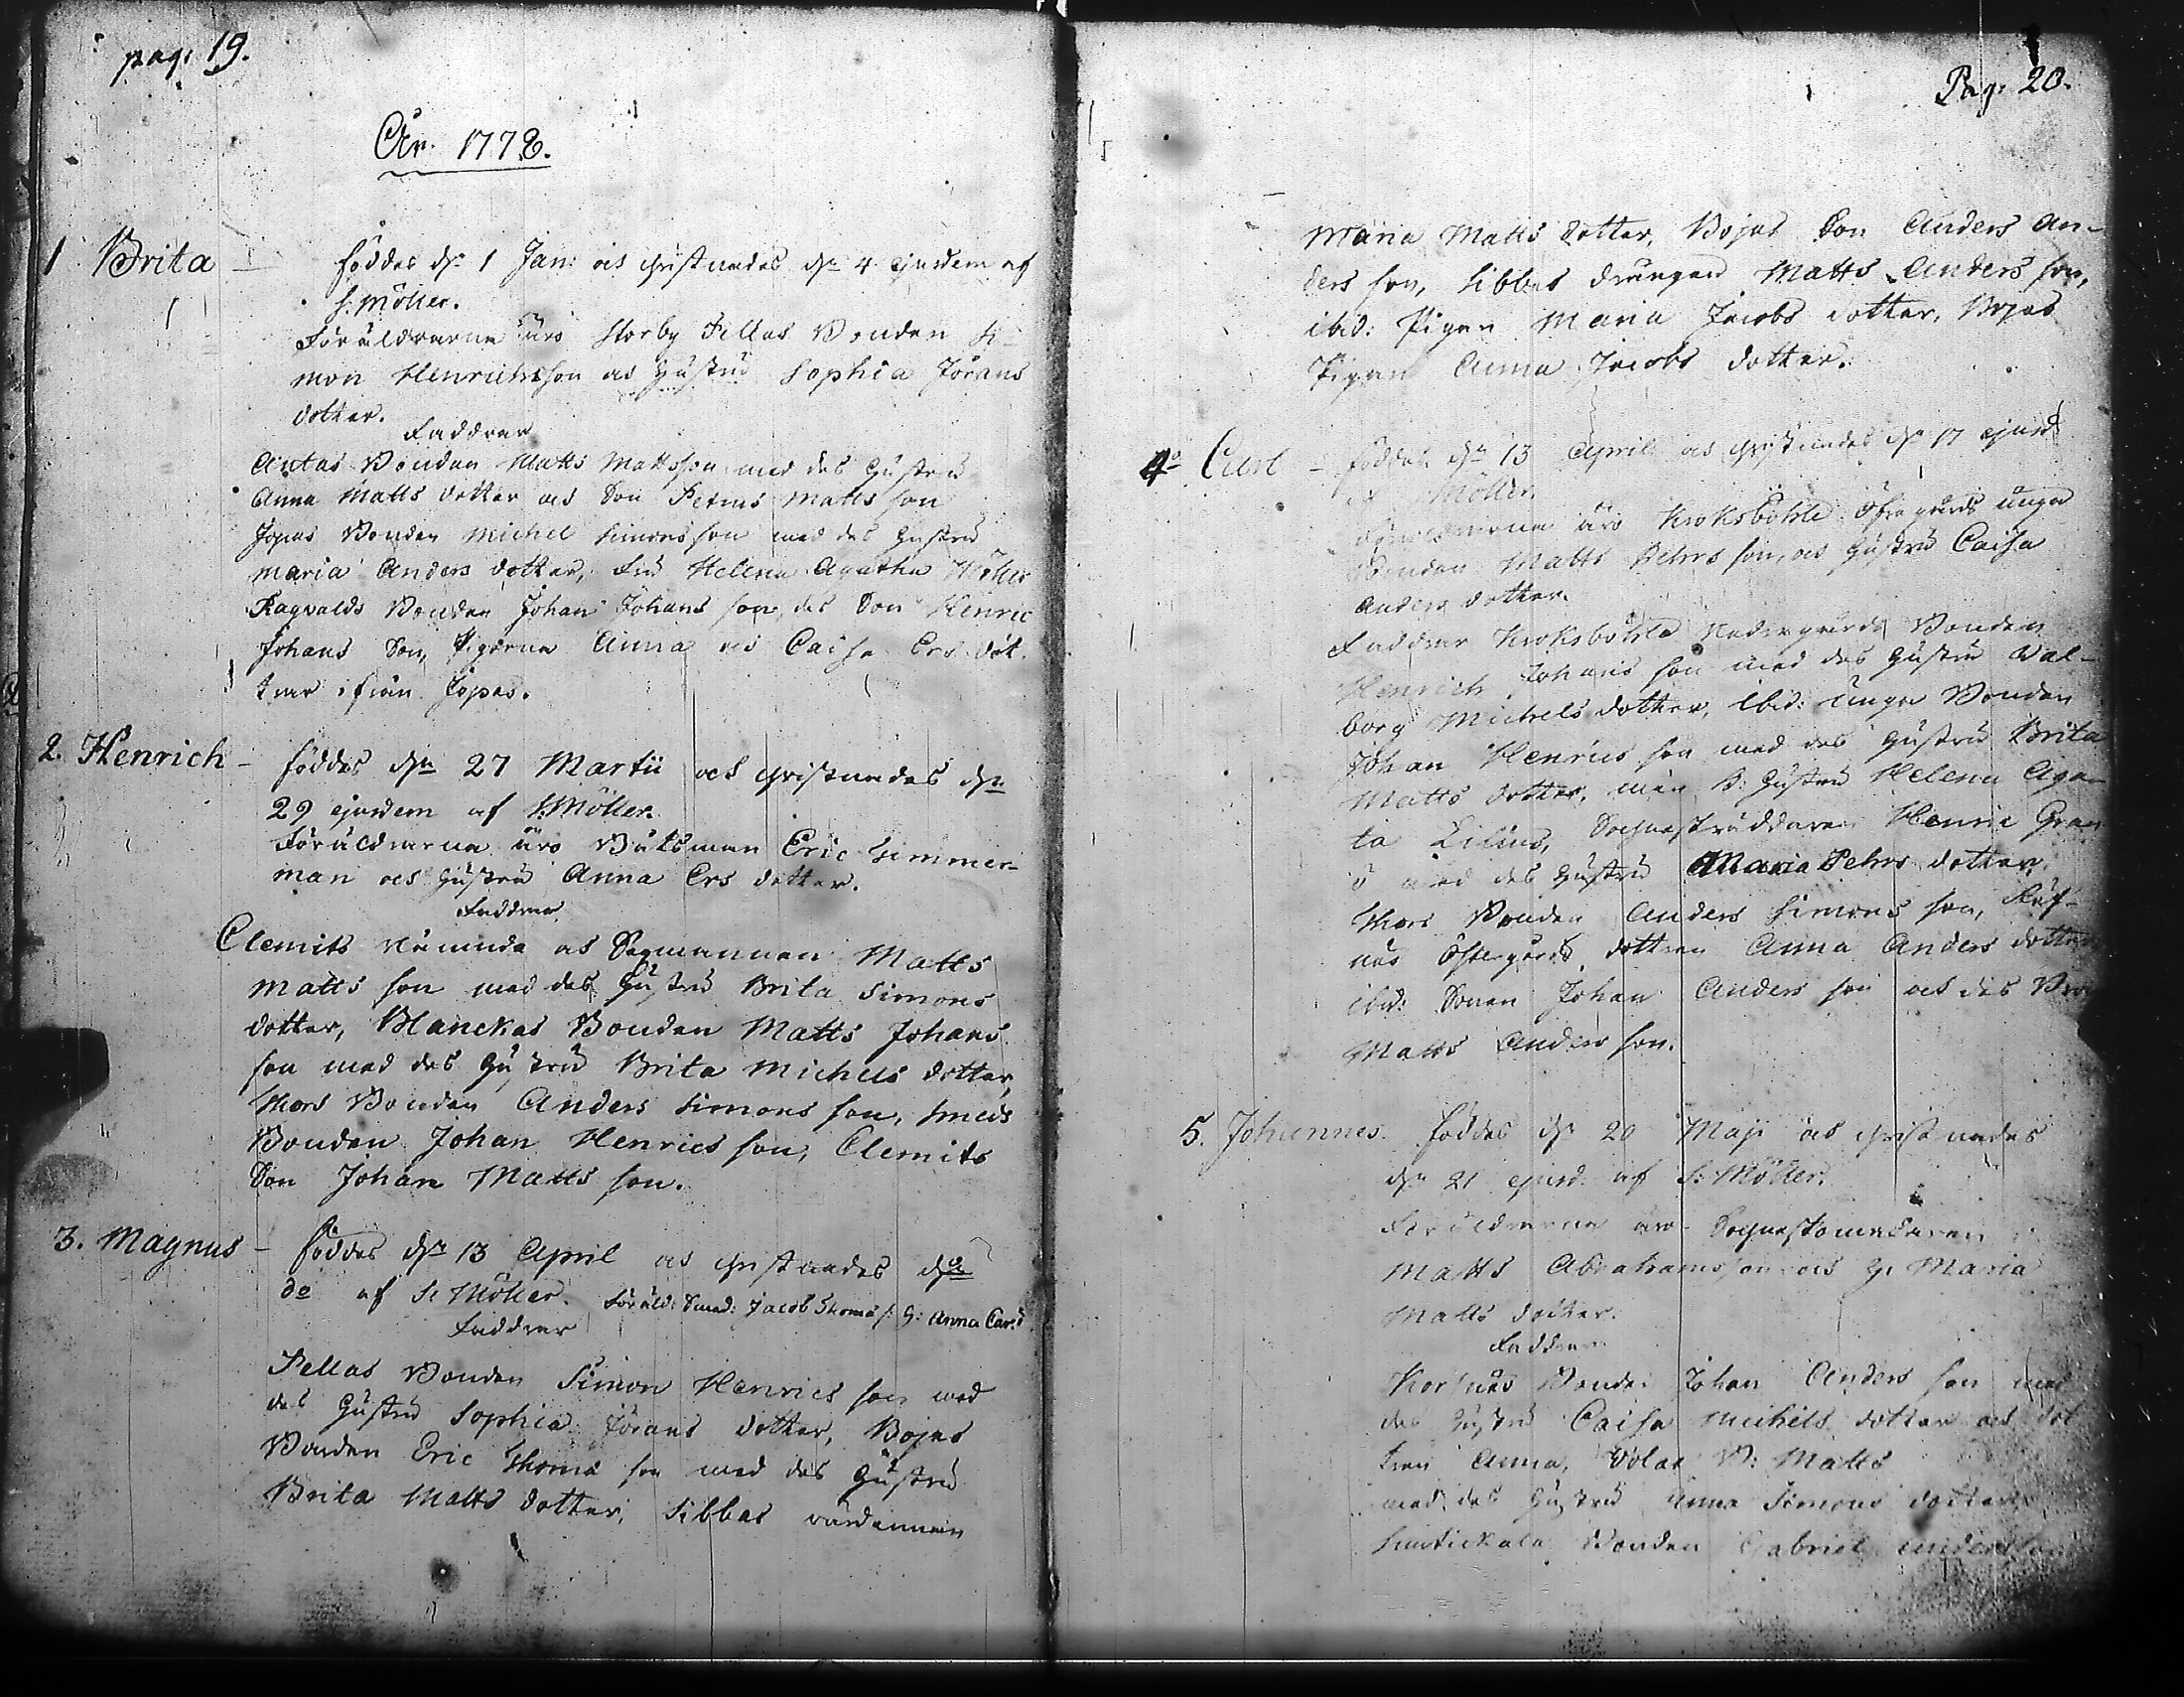 pag: 19.
År 1778.
1 Brita – föddes dn 1 Jan: och christnades dn 4 ejusdem af
S. Möller.
Föräldrarne äro Storby Pellas Bonden Si-
mon Henrichsson och Hustru Sophia Jörans
dotter.
Faddrar
Antas Bonden Matts Mattsson med des Hustru
Anna Matts dotter och Son Petrus Matts son
Jopas Bonden Michel Simonsson med des Hustru
Maria Anders dotter, Fru Helena Agatha Möller
Ragvalds Bonden Johan Johans son, des Son Henric
Johans Son, Pigorna Anna och Caisa Ers döt-
trar ifrån Jopas.
2. Henrich – föddes dn 27 Martii och christnades dn
29 ejusdem af S. Möller.
Föräldrarne äro Båtsman Eric Timmer-
man och Hustru Anna Ers dotter.
Faddrar
Clemits Nämnde och Segmannen Matts
Matts son med des Hustru Brita Simons
dotter, Blanckas Bonden Matts Johans
son med des Hustru Brita Michels dotter,
Thors Bonden Anders Simons son, Smeds
Bonden Johan Henrics son, Clemits
Son Johan Matts son.
3. Magnus – föddes dn 13 April och christnades dn
do af S. Möller. Föräld: Smed: Jacob Thomas s: H: Anna Car: d
Faddrar
Pellas Bonden Simon Henrics son med
des Hustru Sophia Jörans dotter, Bojas
Bonden Eric Thomas son med des Hustru
Brita Matts dotter, Sibbes värdinnan
Pag: 20.
Maria Matts dotter, Bojas Son Anders An-
ders son, Sibbes drängen Matts Anders son,
ibid: Pigan Maria Jacobs dotter, Bojas
Pigan Anna Jacobs dotter.
4o Carl – föddes dn 13 April och christnades dn 17 ejusd
af Möller.
Föräldrarne äro Kroksbölsle Öfregårds unga
Bonden Matts Pehrs son, och Hustru Caisa
Anders dotter.
Faddrar Kroksbölsle Nedergårds Bonden
Henrich Johans son med des Hustru Wal-
borg Michels dotter, ibid: unga Bonden
Johan Henrics son med des Hustru Brita
Matts dotter, min K: Hustru Helena Aga-
ta Lilius, Sockneskräddaren Henric Gran
ö med des Hustru Maria Pehrs dotter,
Thors Bonden Anders Simons son, Räf-
näs Östergårds dottren Anna Anders dotter
ibid: Sonen Johan Anders son och des Bro
Matts Anders son.
5. Johannes. föddes dn 20 Maji och christnades
dn 21 ejusd. af S. Möller.
Föräldrarne äro Socknaskomakaren
Matts Abrahamsson och H. Maria
Matts dotter.
Faddrar
Korsnäs Bonden Johan Anders son med
des Hustru Caisa Michels dotter och dot
tren Anna, B: Matts
med des Hustru Anna Simons dotter
Bonden Gabriel Andersson